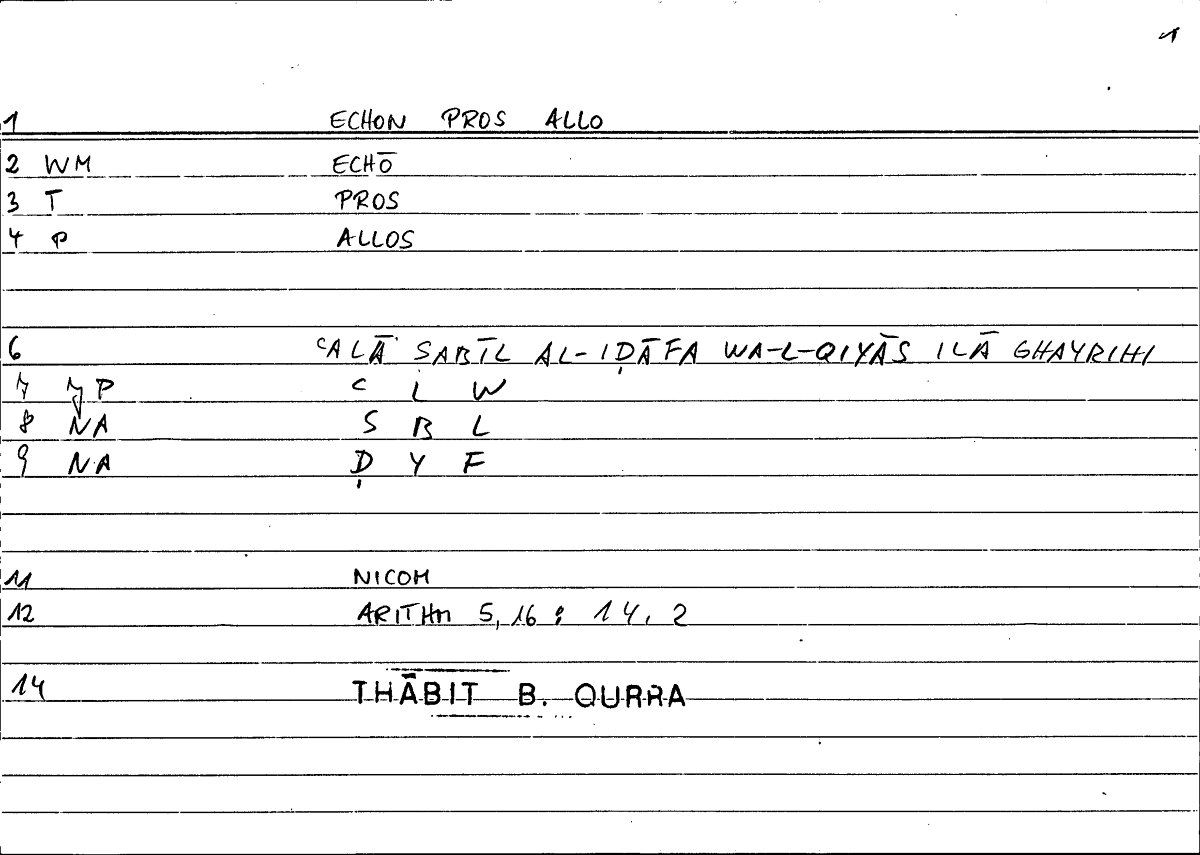 1
1 ECHON PROS ALLO
2 WM ECHŌ
3 T PROS
4 P ALLOS
6 ꜤALĀ SABĪL AL-IḌĀFA WA-L-QIYĀS ILĀ GHAYRIHI
7 P Ꜥ L W
8 NA S B L
9 NA Ḍ Y F
11 NICOM
12 ARITHM 5,16 : 14.2
14 THĀBIT B. QURRA